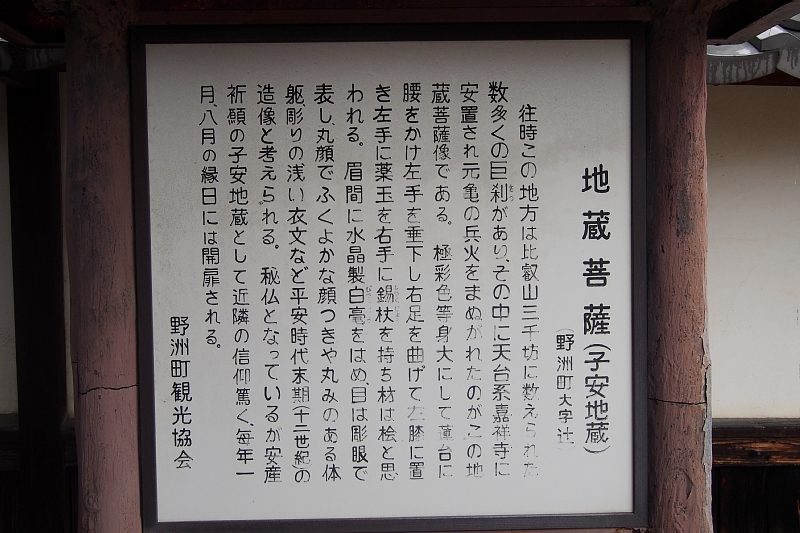 地蔵菩薩(子安地蔵)
(野洲町大字辻)
往時この地方は比叡山三千坊に数えられた
数多くの巨刹があり、その中に天台系嘉祥寺に
安置され元亀の兵火をまぬがれたのがこの地
蔵菩薩像である。極彩色等身大にして蓮台に
腰をかけ左手を垂下し右足を曲げて左膝に置
き左手に薬玉を右手に錫杖を持ち材は桧と思
われる。眉間に水晶製白毫をはめ、目は彫眼で
表し、丸顔でふくよかな顔つきや丸みのある体
躯、彫りの浅い衣文など平安時代末期(十二世紀)の
造像と考えられる。秘仏となっているが安産
祈願の子安地蔵として近隣の信仰篤く、毎年一
月、八月の縁日には開扉される。
野洲町観光協会